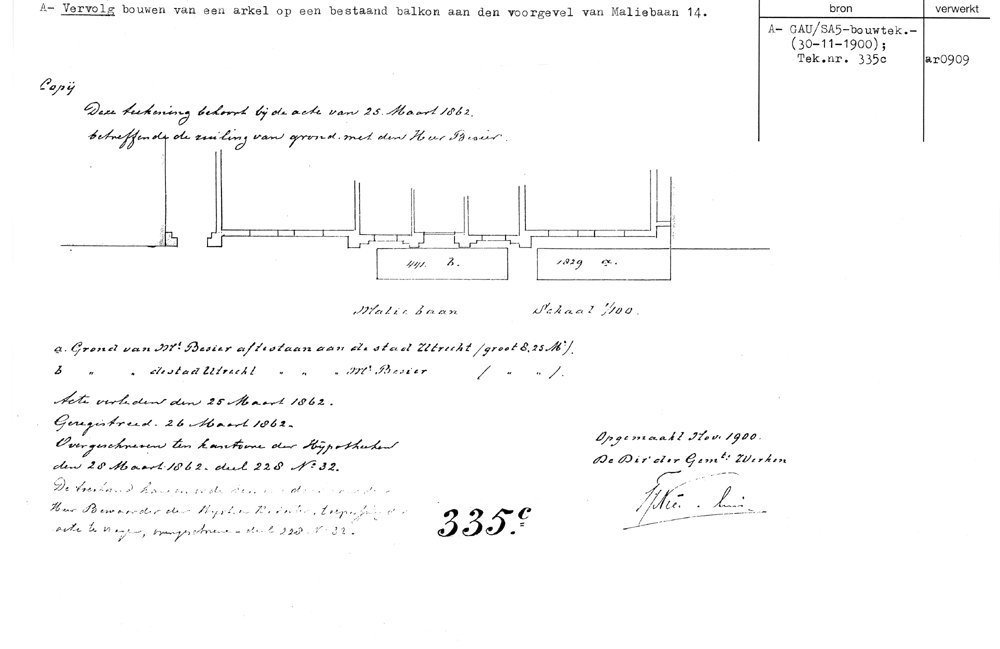 A- Vervolg bouwen van een arkel op een bestaand balkon aan den voorgevel van Maliebaan 14.
bron
verwerkt
A- GAU/SA5-bouwtek.-
(30-11-1900);
Tek.nr. 335c
ar0909
Copij
Deze teekening behoort bij de acte van 25 Maart 1862.
betreffende de ruiling van grond met den Heer Besier.
441. b.
1829 a.
Maliebaan
Schaal 1/100.
a. Grond van Mr. Besier aftestaan aan de stad Utrecht (groot 8,25 M²).
b " " de stad Utrecht " " " Mr. Besier ( " " ).
Acte verleden den 25 Maart 1862.
Geregistreed. 26 Maart 1862.
Overgeschreven ten kantoore der Hypotheken
den 28 Maart 1862. deel 228 No. 32.
Heer Bewaarder der
acte te deel 228 No. 32.
Opgemaakt Nov. 1900.
De Dir. der Gemte. Werken
335.c